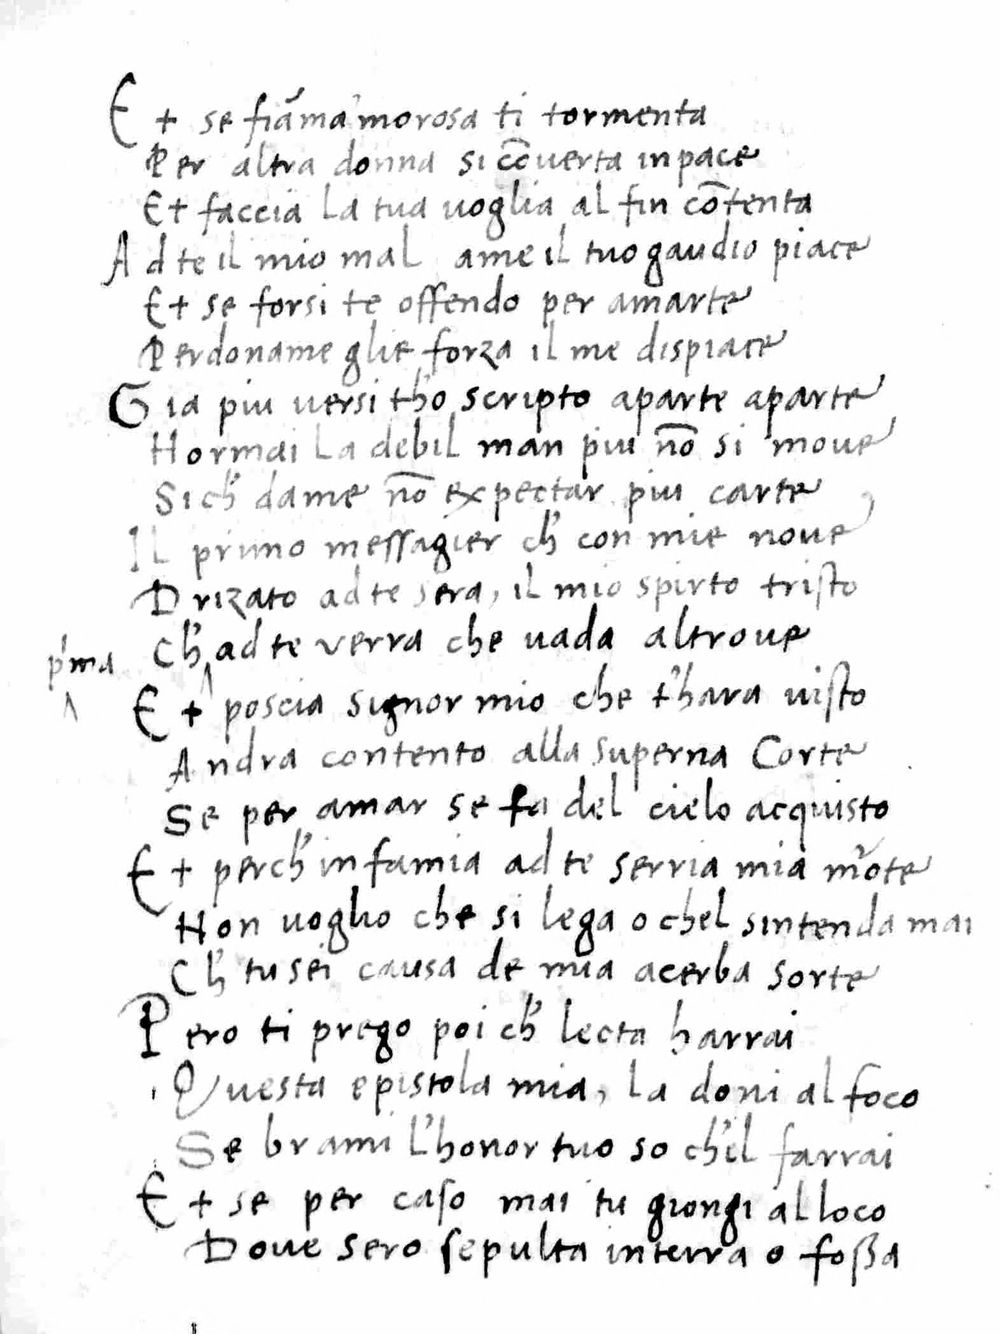 Et se fiãma morosa ti tormenta
Per altra donna si cõuerta in pace
Et faccia la tua uoglia al fin cõtenta
Ad te il mio mal ame il tuo gaudio piace
Et se forsi te offendo per amarte
Perdoname glie forza il me dispiace
Gia piu uersi tħo scripto aparte aparte
Hormai la debil man piu nõ si moue
Si cħ da me nõ expectar piu carte
Il primo messagier cħ con mie noue
Drizato ad te sera, il mio spirto tristo
Cħ ad te verra che uada altroue
p'ma
Et poscia signor mio che t'hara uisto
Andra contento alla superna Corte
Se per amar se fa del cielo acquisto
Et percħ infamia ad te serria mia mote
Non uoglio che si lega o chel sintenda mai
Cħ tu sei causa de mia acerba sorte
Pero ti prego poi cħ lecta harrai
Questa epistola mia, la doni al foco
Se brami l'honor tuo so ch'el farrai
Et se per caso mai tu giongi al loco
Doue sero sepulta in terra o foßa